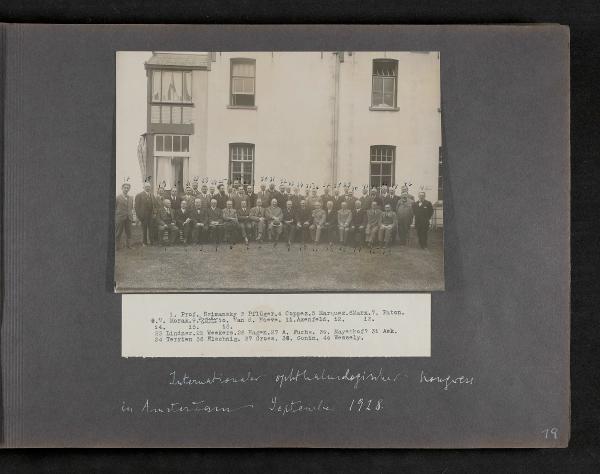 1. Prof. Szimansky 3 Pflüger.4 Coppez.5 Marquez.6Marx.7. Eaton.
Morax.9. Van d. Hoeve. 11.Axenfeld. 12. 13.
14. 15. 16.
23 Lindner.25 Weekers.26 Hagen.27 A. Fuchs. 30. Mayerhof? 31 Ask.
34 Terrien 36 Elschnig. 37 Gross. 38. Gonin. 40 Wessely.
Internationaler ophthalmologischer Kongress
in Amsterdam September 1928.
19